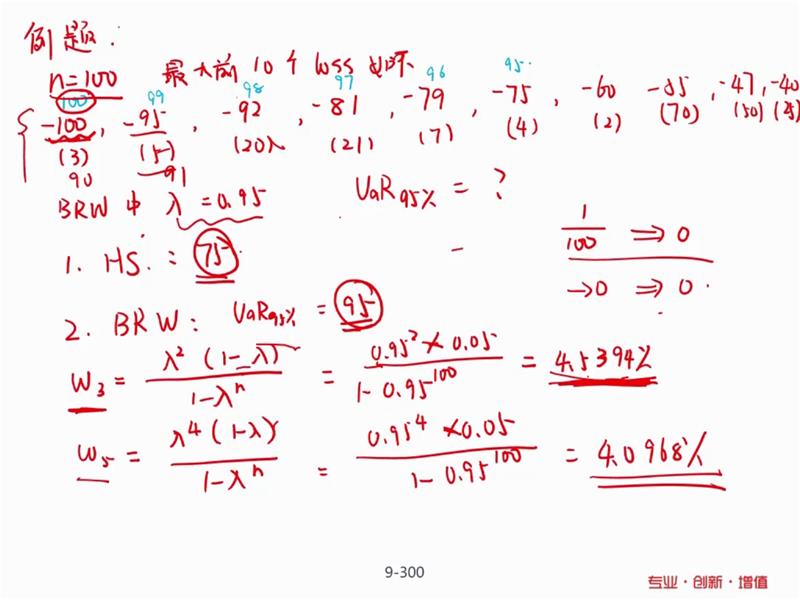 例题：
n=100 最大前10个loss如下
100 99 98 97 96 95
-100, -95, -92, -81, -79, -75, -60 -55, -47, -40
(3) (5) (20) (21) (7) (4) (2) (70) (50) (25)
90 91
BRW中 λ=0.95 VaR95% = ?
1. HS: = 75
1/100 ⇒ 0
→0 ⇒ 0.
2. BRW: VaR95% = 95
W3 = λ²(1-λ)/1-λⁿ = 0.95²×0.05/1-0.95¹⁰⁰ = 4.5394%
W5 = λ⁴(1-λ)/1-λⁿ = 0.95⁴×0.05/1-0.95¹⁰⁰ = 4.0968%
9-300
专业·创新·增值